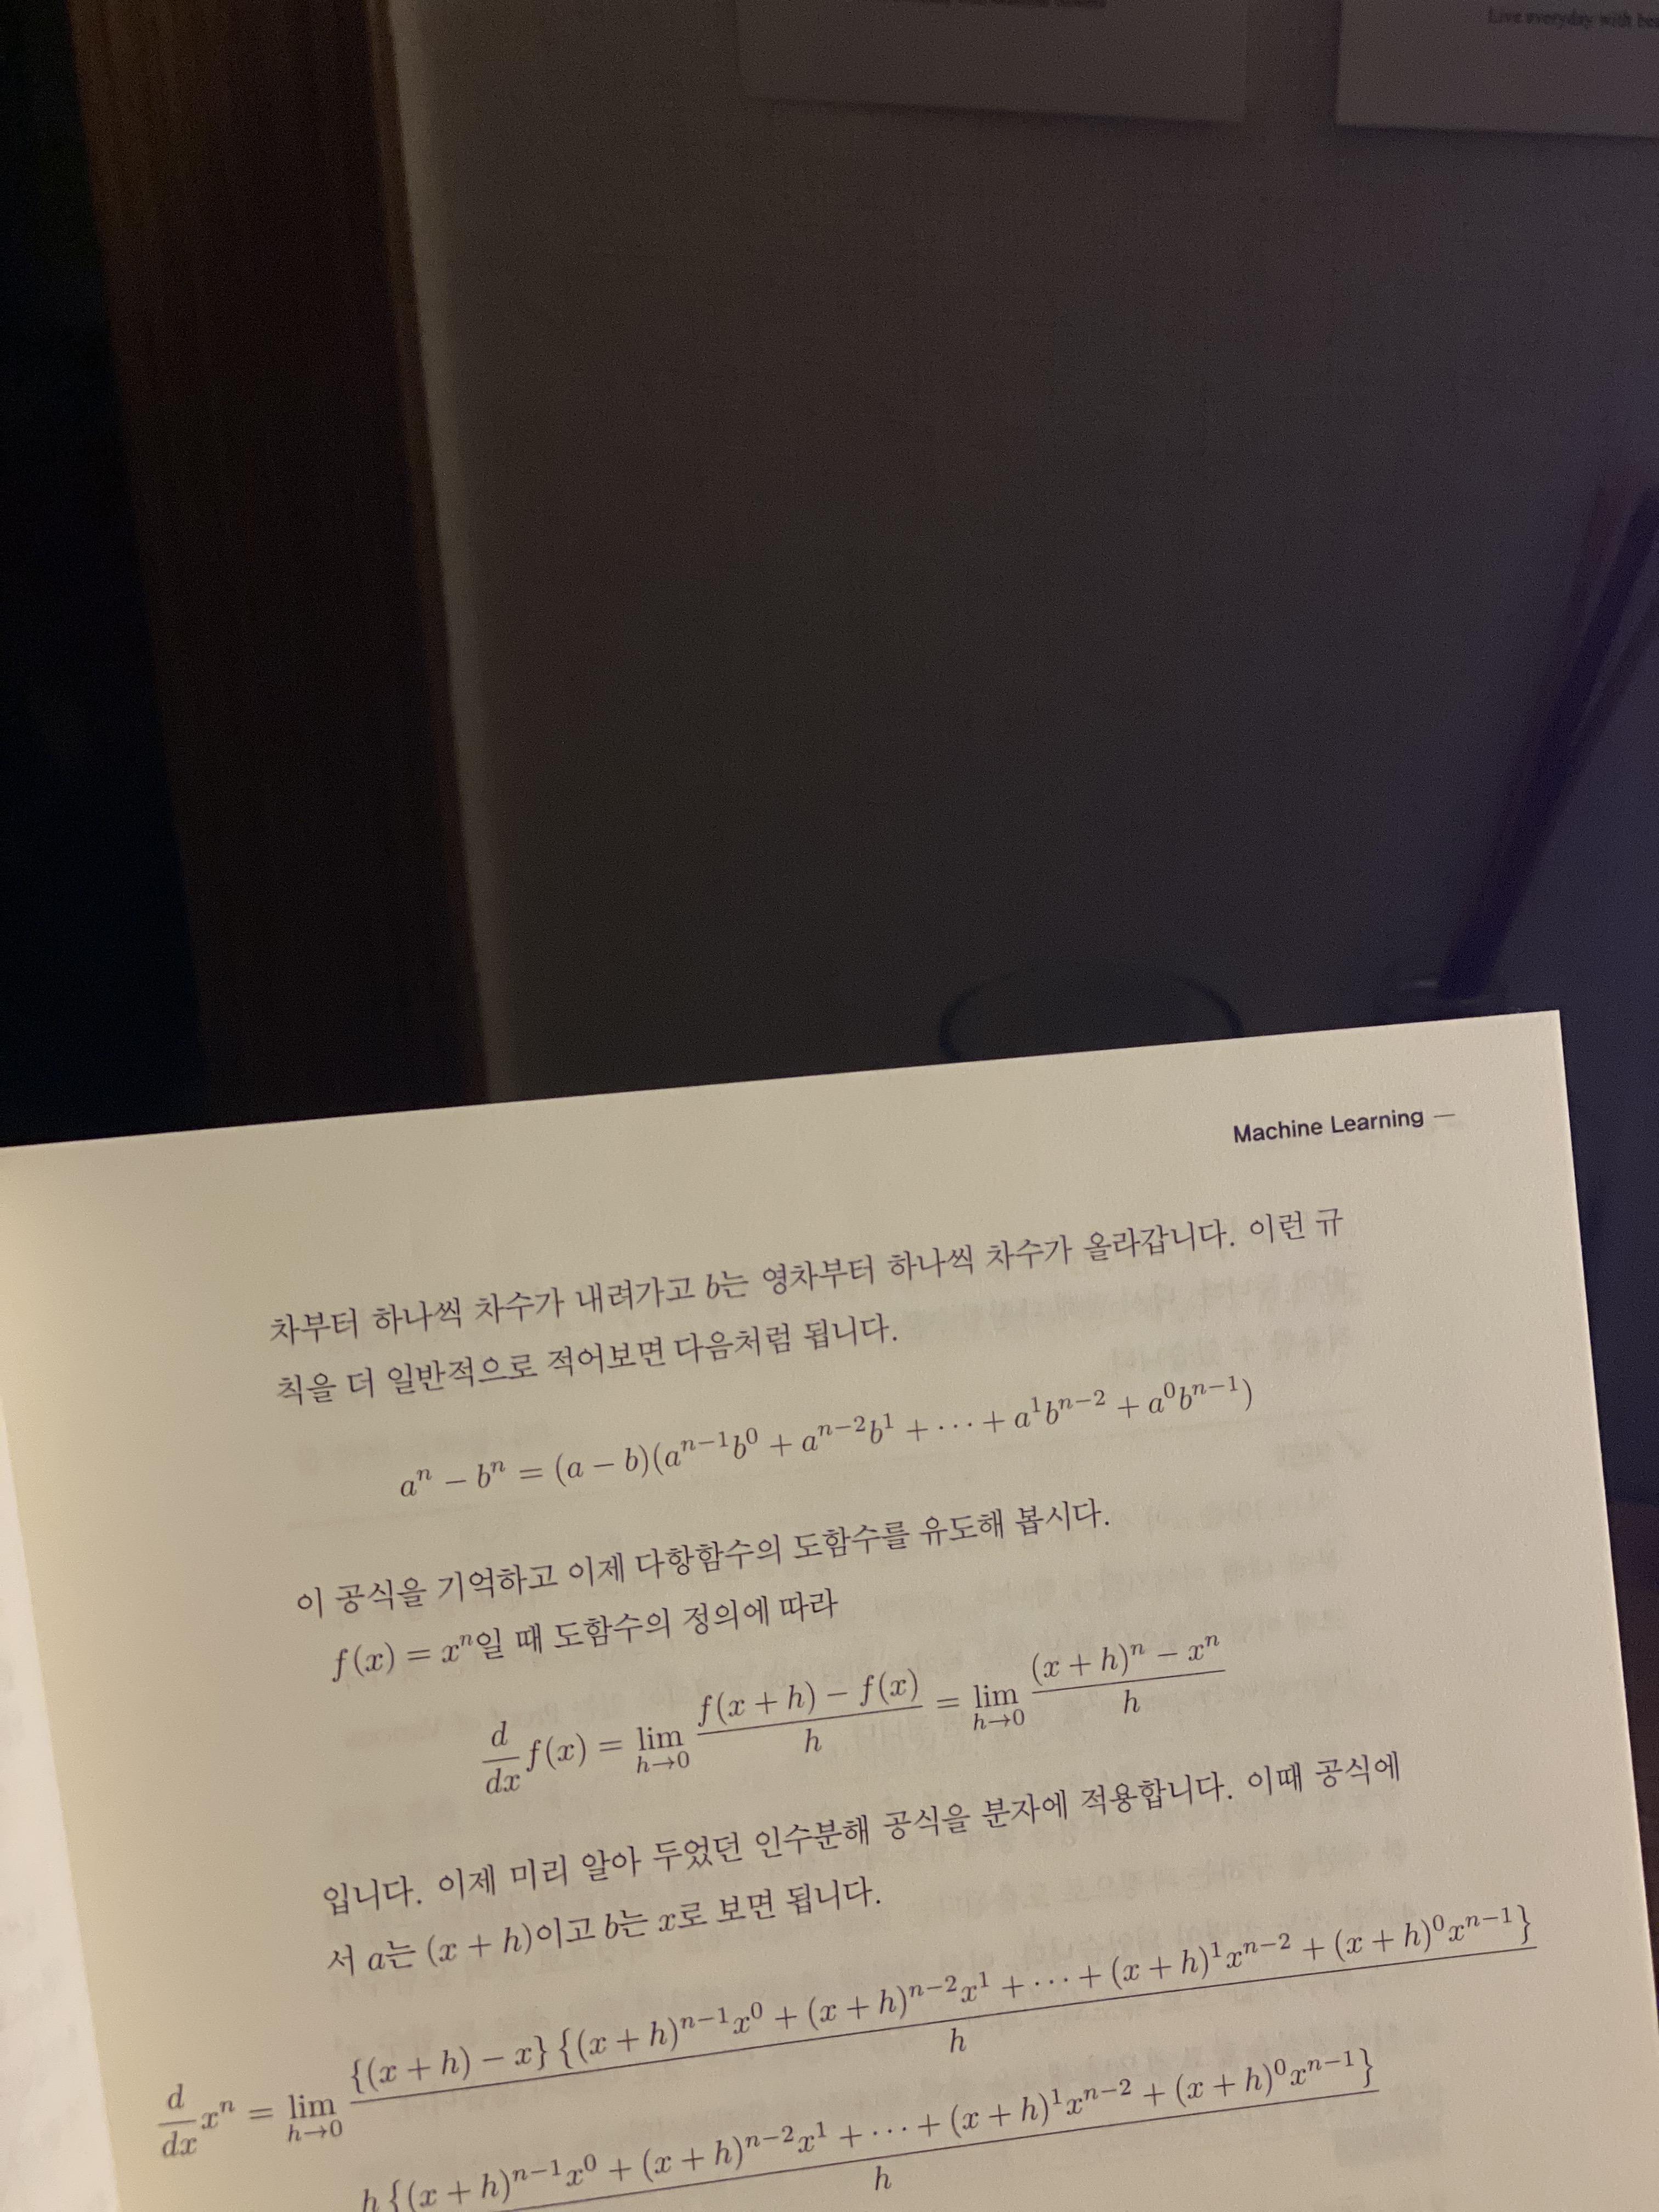 Live everyday with
Machine Learning —
차부터 하나씩 차수가 내려가고 b는 영차부터 하나씩 차수가 올라갑니다. 이런 규
칙을 더 일반적으로 적어보면 다음처럼 됩니다.
aⁿ − bⁿ = (a − b)(aⁿ⁻¹b⁰ + aⁿ⁻²b¹ + ⋯ + a¹bⁿ⁻² + a⁰bⁿ⁻¹)
이 공식을 기억하고 이제 다항함수의 도함수를 유도해 봅시다.
f(x) = xⁿ일 때 도함수의 정의에 따라
d/dx f(x) = lim h→0 (f(x + h) − f(x))/h = lim h→0 ((x + h)ⁿ − xⁿ)/h
입니다. 이제 미리 알아 두었던 인수분해 공식을 분자에 적용합니다. 이때 공식에
서 a는 (x + h)이고 b는 x로 보면 됩니다.
d/dx xⁿ = lim h→0 {(x + h) − x}{(x + h)ⁿ⁻¹x⁰ + (x + h)ⁿ⁻²x¹ + ⋯ + (x + h)¹xⁿ⁻² + (x + h)⁰xⁿ⁻¹}/h
h{(x + h)ⁿ⁻¹x⁰ + (x + h)ⁿ⁻²x¹ + ⋯ + (x + h)¹xⁿ⁻² + (x + h)⁰xⁿ⁻¹}/h